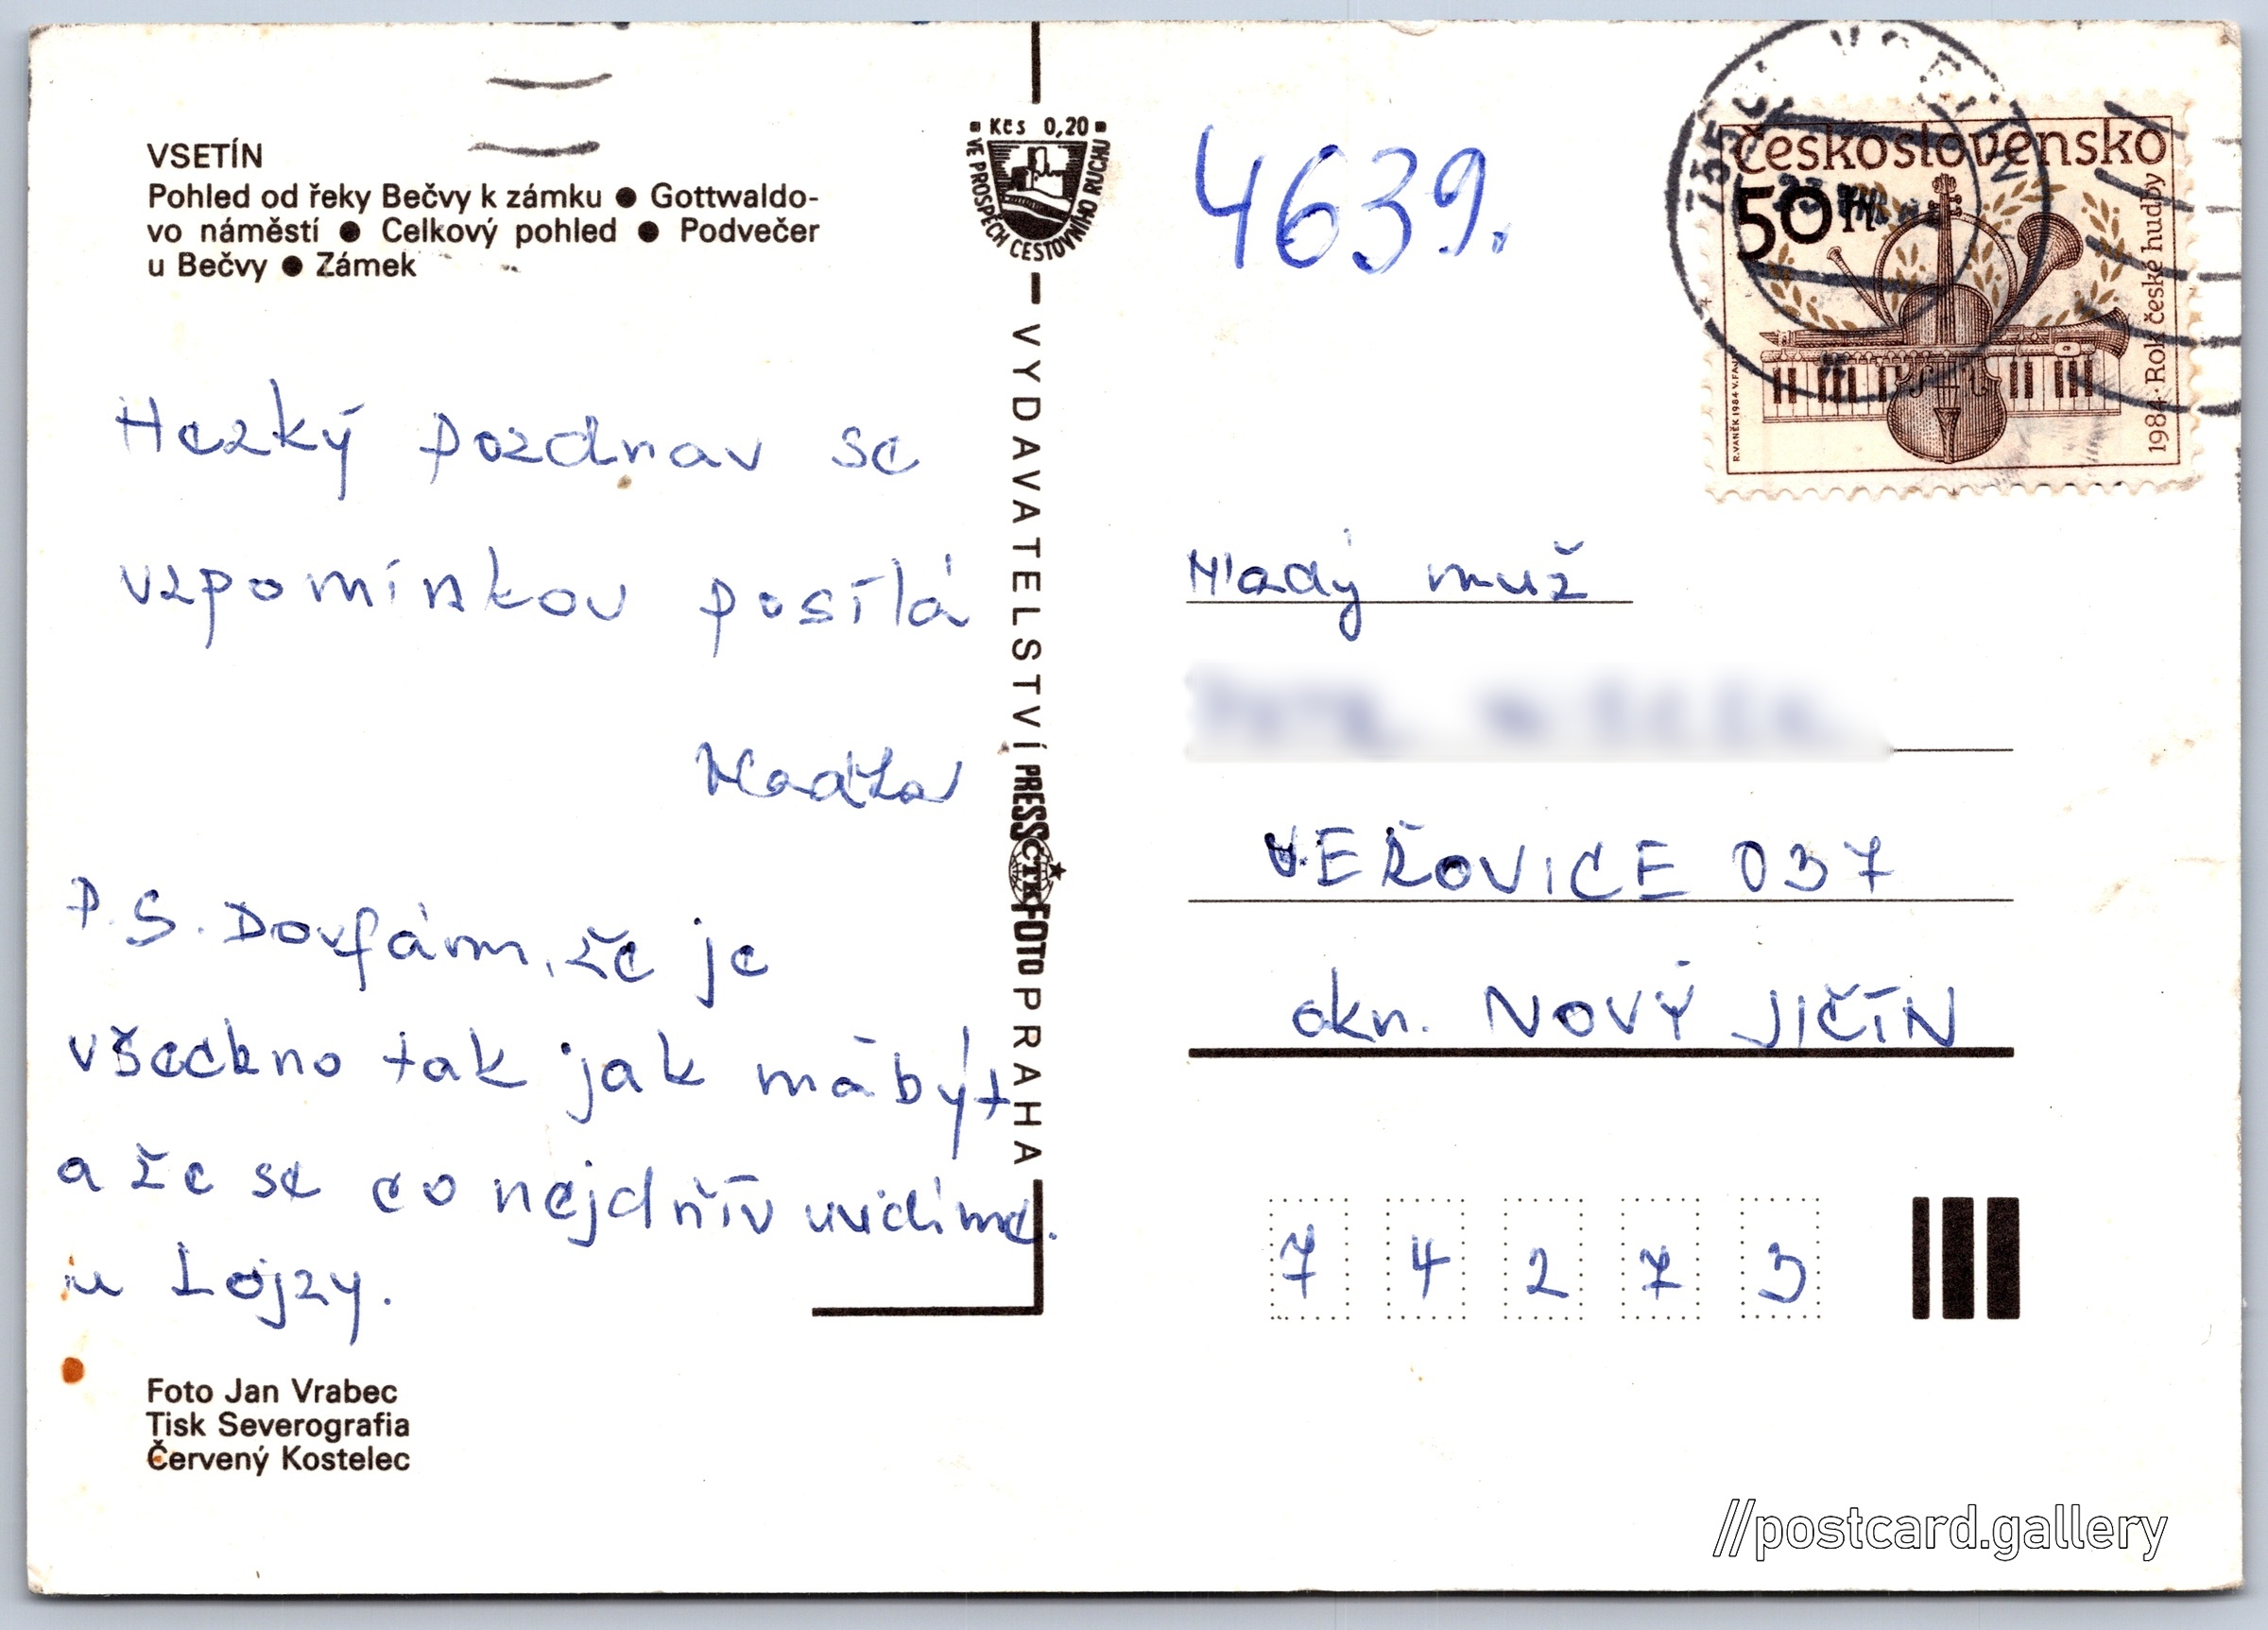 VSETÍN
Pohled od řeky Bečvy k zámku ● Gottwaldo-
vo náměstí ● Celkový pohled ● Podvečer
u Bečvy ● Zámek
Hezký pozdrav se
vzpomínkou posílá
P.S. Doufám, že je
všechno tak jak má být
a že se co nejdřív uvidíme.
u Lojzy.
Foto Jan Vrabec
Tisk Severografia
Červený Kostelec
Kčs 0,20
VE PROSPĚCH CESTOVNÍHO RUCHU
VYDAVATELSTVÍ PRESSFOTO PRAHA
ČTK
4639.
Československo
50 H
1984 · Rok české hudby
R.VANĚK 1984 V.FAJT
VSETÍN
Mladý muž
VEŘOVICE 037
okr. NOVÝ JIČÍN
7 4 2 7 3
//postcard.gallery